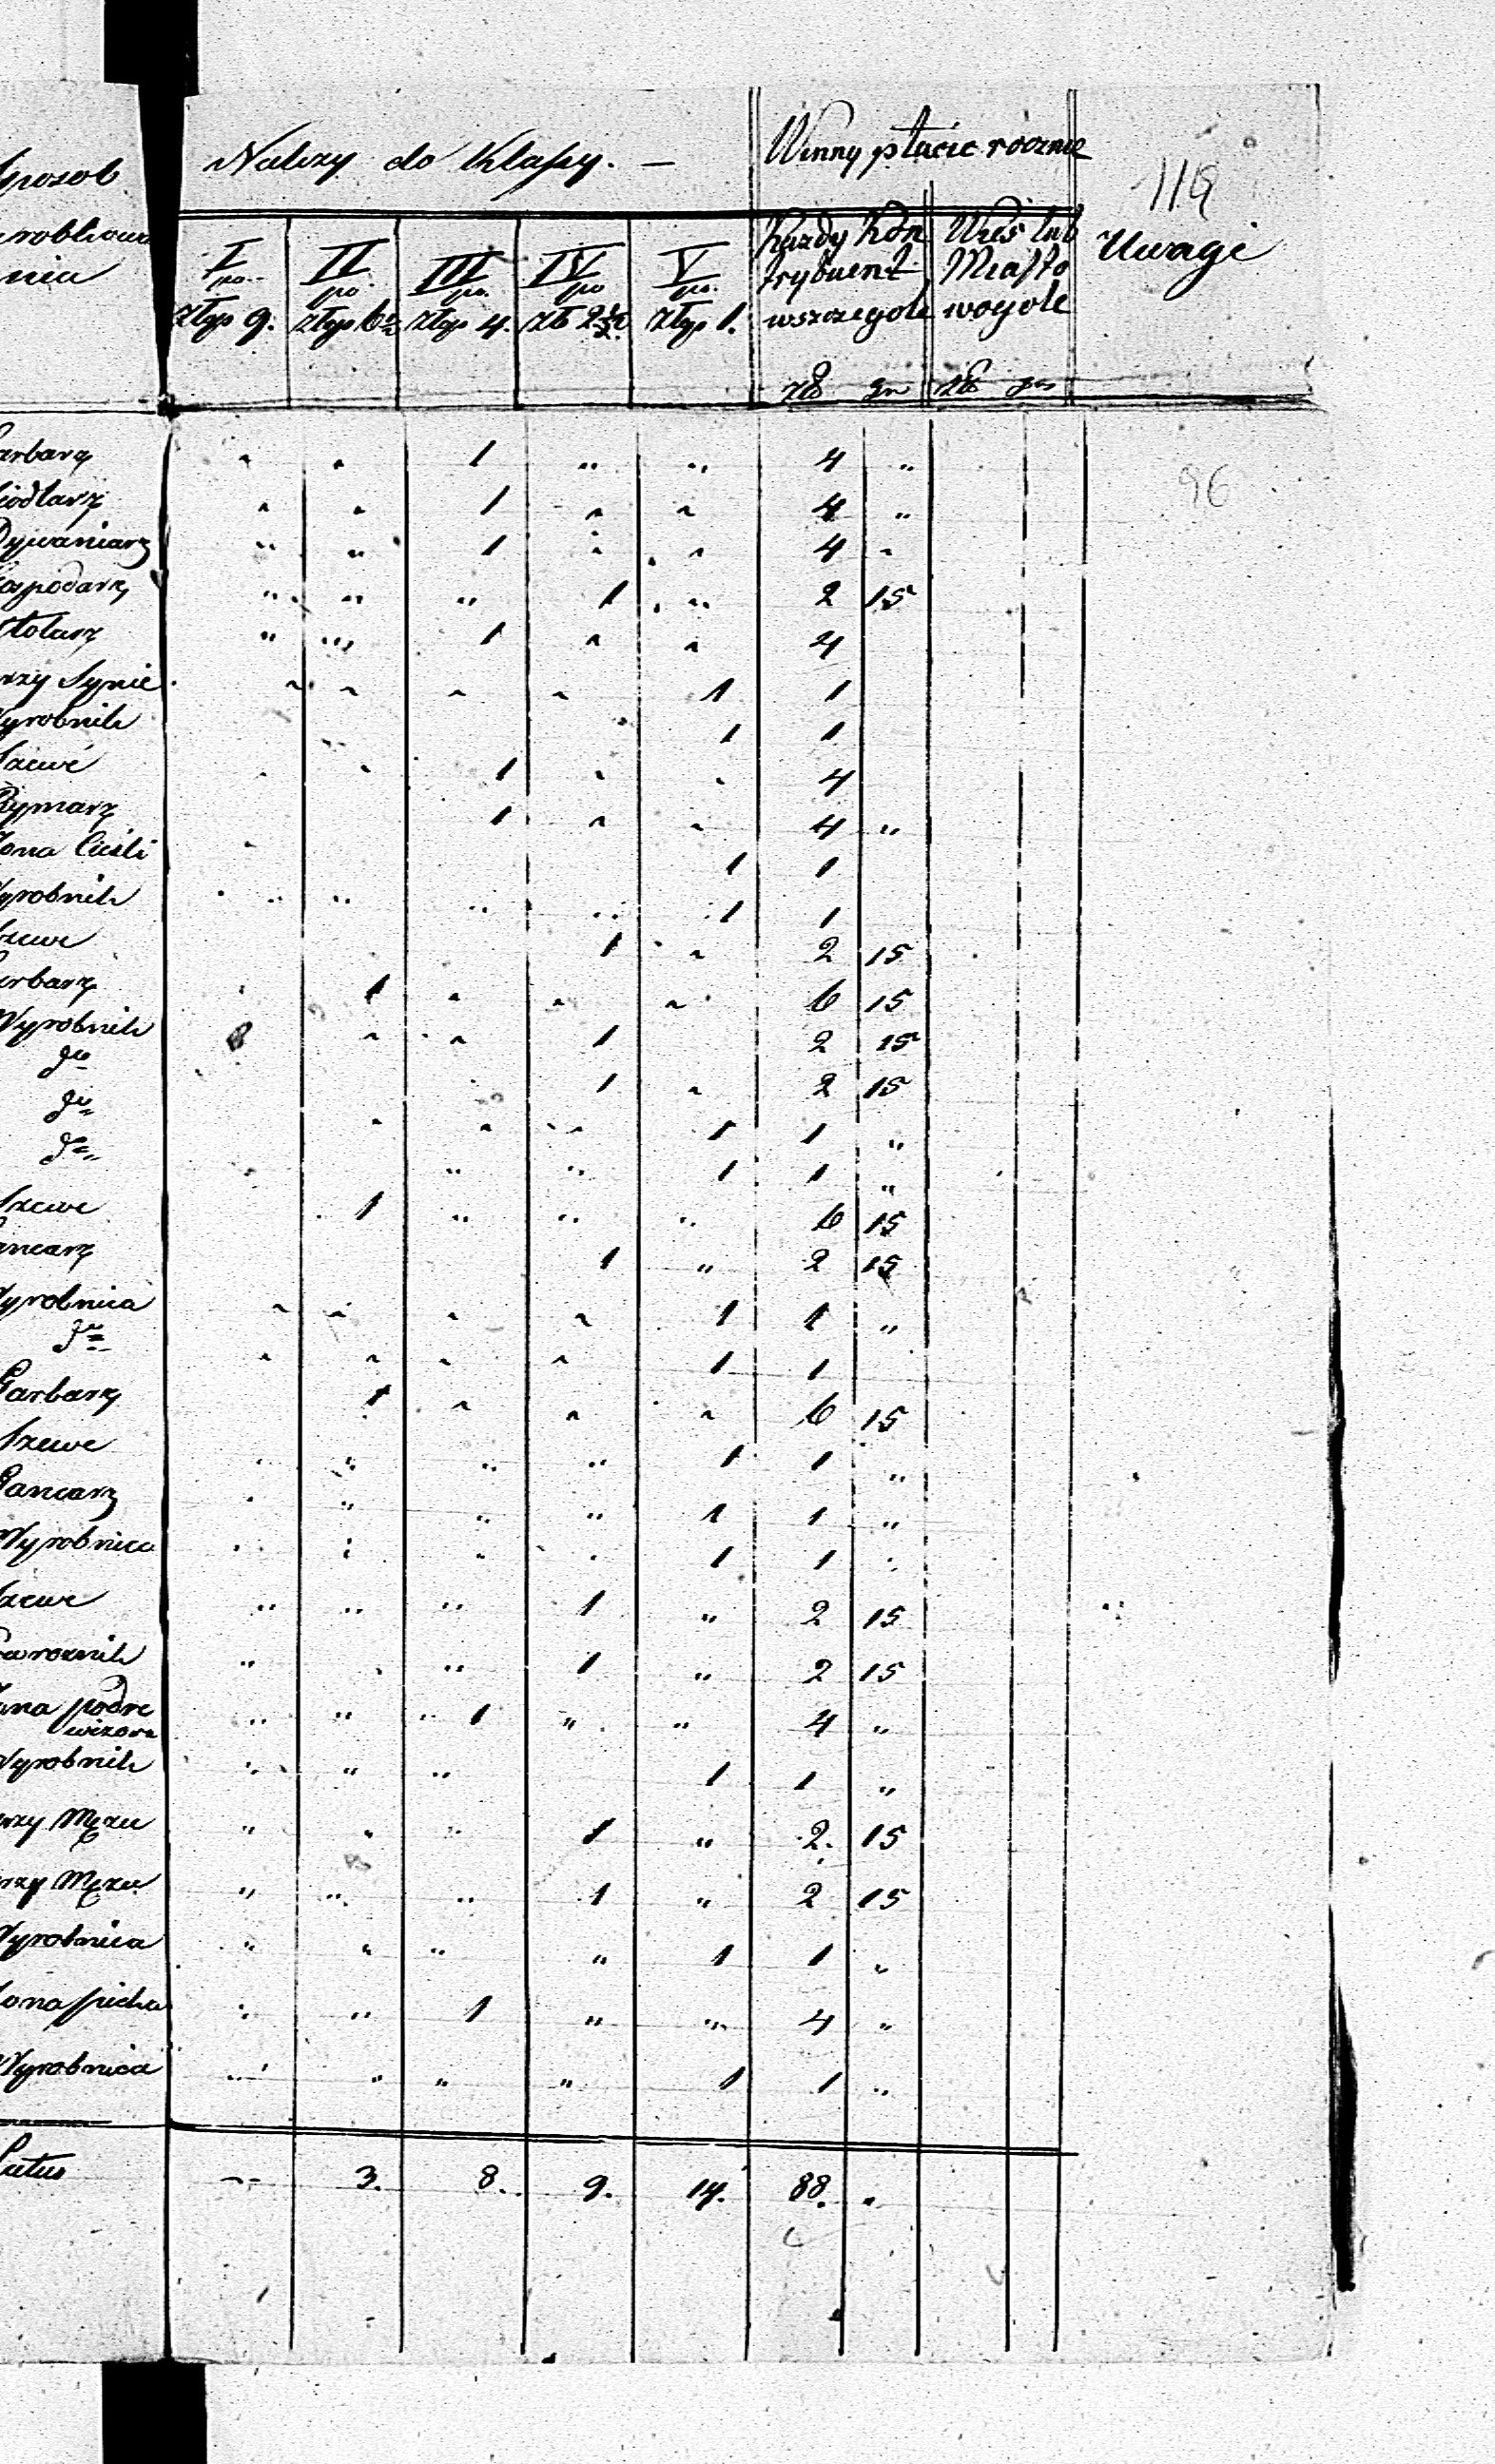 Należy do Klassy. —
Winny płacić rocznie
119
Sposob
zarobkowa
nia
I po złtyp 9.
II po złtyp 6½
III po złtyp 4.
IV po złt 2½.
V po złtyp 1.
Każdy Kon
trybuent
wszczegole
Wieś lub
Miasto
wogole
Uwagi
złt gr złt gr
96
arbarz " " 1 " " 4 "
iodlarz " " 1 " " 4 "
Dywaniarz " " 1 " " 4 "
ospodarz " " " 1 " 2 15
Stolarz " " 1 " " 4
rzy Synie " " " " 1 1
yrobnik 1 1
Szewc " " 1 " " 4
Rymarz 1 " " 4 "
ona Cieśli " 1 1
yrobnik " " " " 1 1
Szewc 1 " 2 15
arbarz " 1 " " " 6 15
Wyrobnik " " 1 2 15
do 1 " 2 15
do " " " 1 1 "
do " " 1 1 "
Szewc 1 " " " 6 15
ancarz 1 " 2 15
yrobnica " " " " 1 1 "
do " " " " 1 1
Garbarz 1 " " " 6 15
Szewc " " " " 1 1 "
Gancarz " " " " 1 1 "
Wyrobnica " " " " 1 1 "
Szewc " " " 1 " 2 15
arosnik " " " 1 " 2 15
ona podre
wizora " " 1 " " 4 "
yrobnik " " " 1 1 "
rzy Mężu " " " 1 " 2. 15
rzy Mężu " " " 1 " 2 15
yrobnica " " " " 1 1 "
ona 1 " " 4 "
Wyrobnica " " " " 1 1 "
Latus -- 3. 8. 9. 14. 88. "